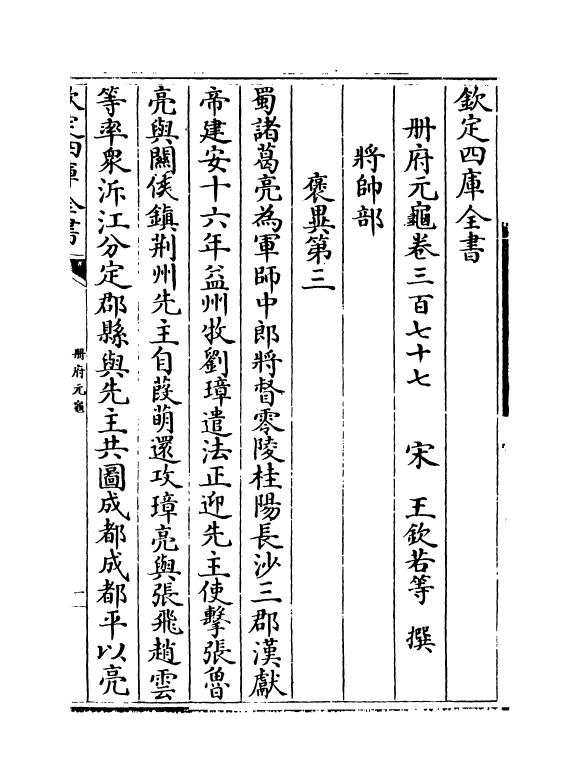 欽定四庫全書
册府元龜卷三百七十七 宋 王欽若等 撰
將帥部
褒異第三
蜀諸葛亮為軍師中郎將督零陵桂陽長沙三郡漢獻
帝建安十六年益州牧劉璋遣法正迎先主使擊張魯
亮與關侯鎮荆州先主自葭萌還攻璋亮與張飛趙雲
等率衆泝江分定郡縣與先主共圖成都成都平以亮
欽定四庫全書
册府元龜
一